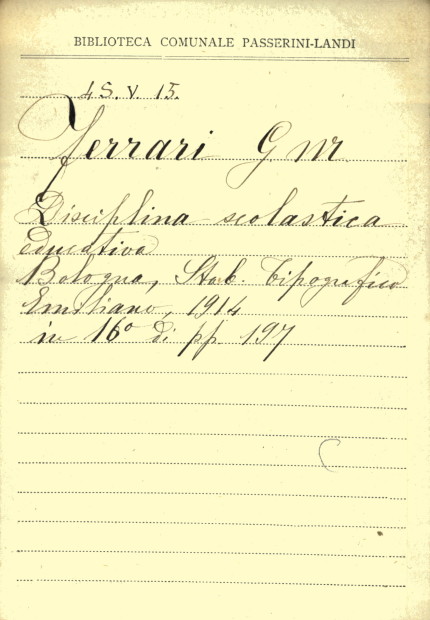 BIBLIOTECA COMUNALE PASSERINI-LANDI
4 S. V. 15.
Ferrari G M
Disciplina scolastica
educativa
Bologna, Stab. Tipografico
Emiliano, 1914
in 16° di pp 197